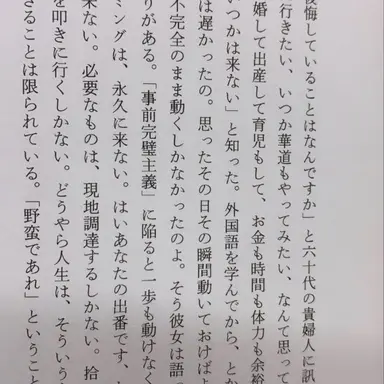 後悔していることはなんですか」と六十代の貴婦人に訊
行きたい、いつか華道もやってみたい、なんて思って
婚して出産して育児もして、お金も時間も体力も余裕
いつかは来ない」と知った。外国語を学んでから、とか
は遅かったの。思ったその日その瞬間動いておけばよ
不完全のまま動くしかなかったのよ。そう彼女は語っ
りがある。「事前完璧主義」に陥ると一歩も動けなく
ミングは、永久に来ない。はいあなたの出番です、
来ない。必要なものは、現地調達するしかない。拾
を叩きに行くしかない。どうやら人生は、そういう
さることは限られている。「野蛮であれ」ということ